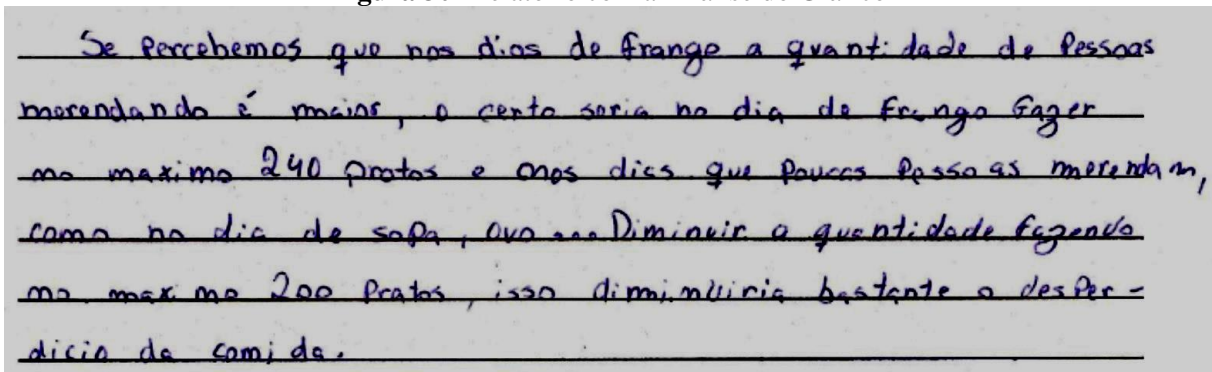 Se Percebemos que nos dias de frango a quantidade de Pessoas
merendando é maior, o certo seria no dia de frango fazer
no maximo 240 pratos e nos dias que Poucas Pessoas merendam,
como no dia de sopa, ovo ... Diminuir a quantidade fazendo
no maximo 200 Pratos, isso diminuiria bastante o desper-
dicio da comida.